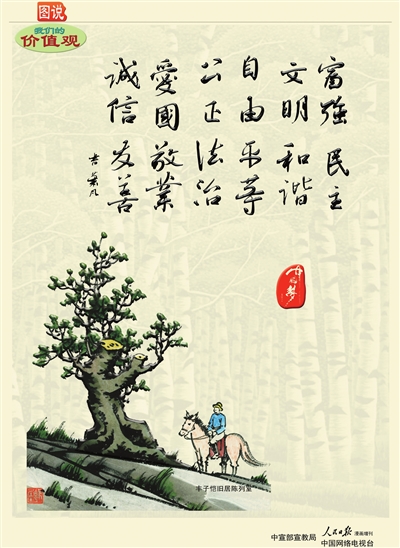 图说
我们的
价值观
富强 民主
文明 和谐
自由 平等
公正 法治
愛國 敬業
誠信 友善
中国梦
丰子恺旧居陈列室
中宣部宣教局
人民日報 漫画增刊
中国网络电视台